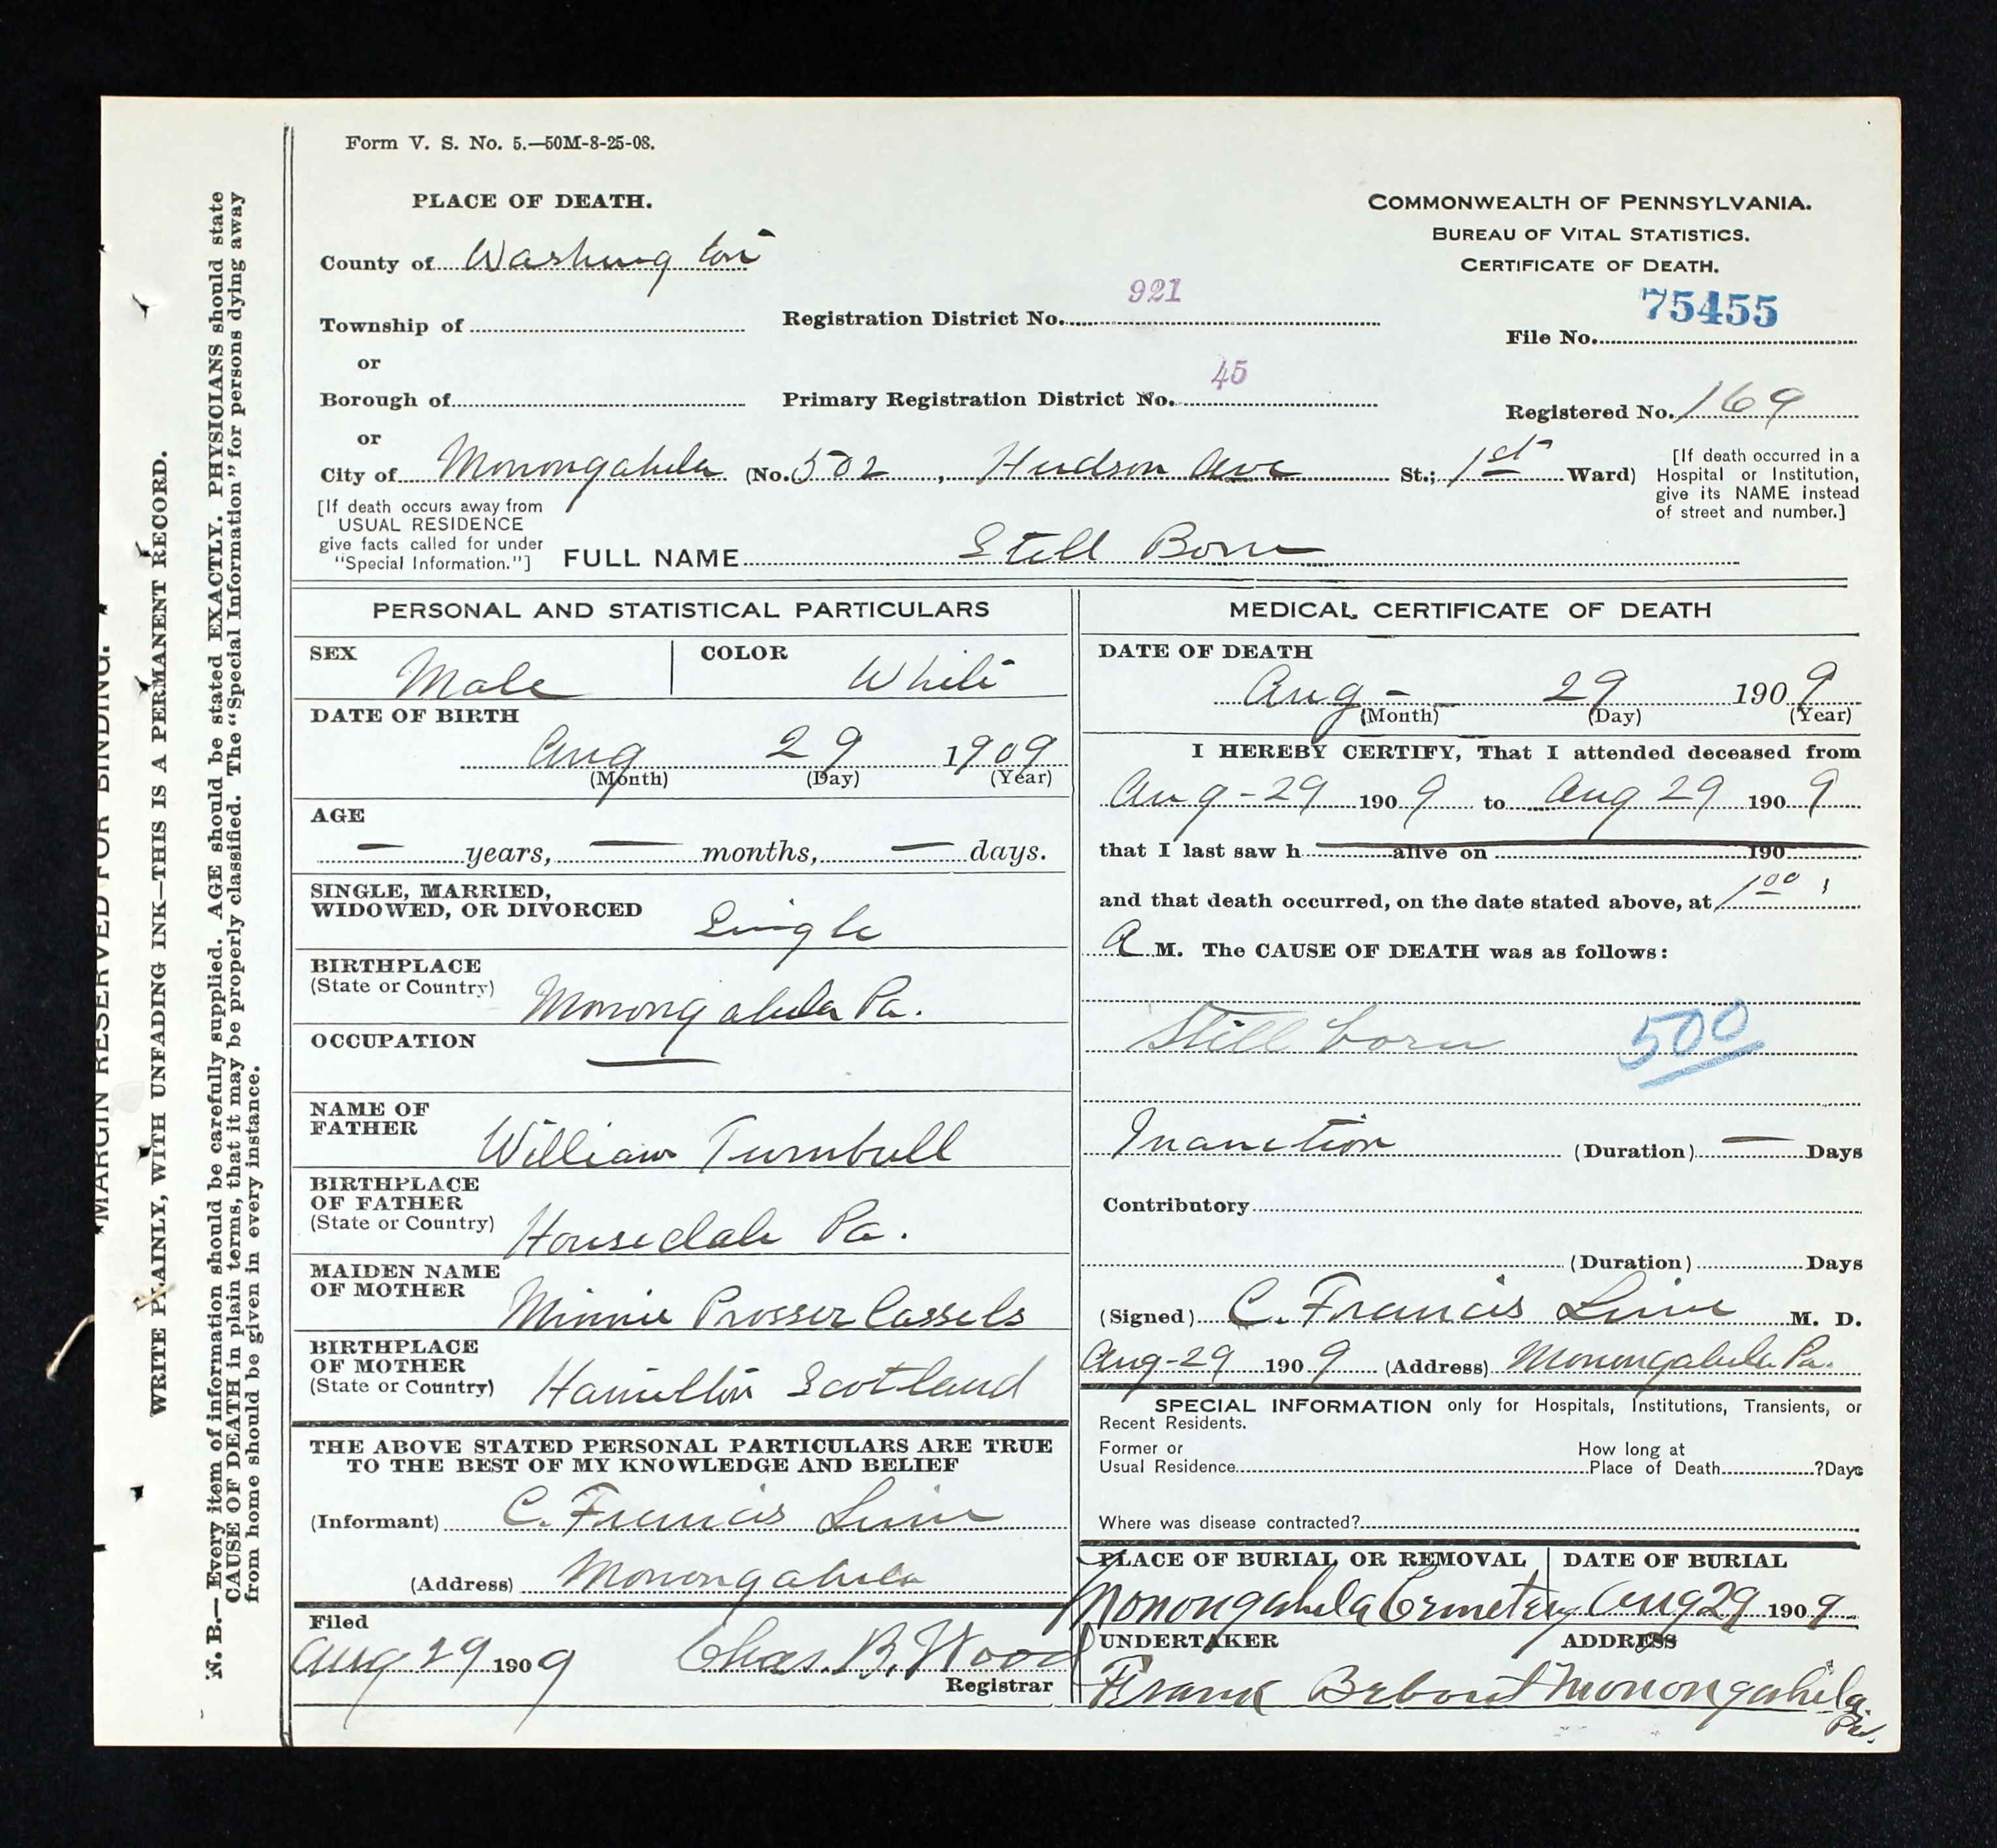 Form V. S. No. 5.—50M-8-25-08.
PLACE OF DEATH.
County of Washington
Township of
or
Borough of
or
City of Monongahela (No. 502, Hudson Ave St.; 1st Ward)
[If death occurs away from
USUAL RESIDENCE
give facts called for under
"Special Information."]
Registration District No. 921
Primary Registration District No. 45
COMMONWEALTH OF PENNSYLVANIA.
BUREAU OF VITAL STATISTICS.
CERTIFICATE OF DEATH.
75455
File No.
Registered No. 169
[If death occurred in a
Hospital or Institution,
give its NAME instead
of street and number.]
FULL NAME Still Born
PERSONAL AND STATISTICAL PARTICULARS
SEX Male
COLOR White
DATE OF BIRTH
Aug 29 1909
(Month) (Day) (Year)
AGE
— years, — months, — days.
SINGLE, MARRIED,
WIDOWED, OR DIVORCED Single
BIRTHPLACE
(State or Country) Monongahela Pa.
OCCUPATION —
NAME OF
FATHER William Turnbull
BIRTHPLACE
OF FATHER
(State or Country) Housedale Pa.
MAIDEN NAME
OF MOTHER Minnie Prosser Cassels
BIRTHPLACE
OF MOTHER
(State or Country) Hamilton Scotland
THE ABOVE STATED PERSONAL PARTICULARS ARE TRUE
TO THE BEST OF MY KNOWLEDGE AND BELIEF
(Informant) C. Francis Linn
(Address) Monongahela
Filed
Aug 29 1909 Chas. B. Wood
Registrar
MEDICAL CERTIFICATE OF DEATH
DATE OF DEATH
Aug - 29 1909
(Month) (Day) (Year)
I HEREBY CERTIFY, That I attended deceased from
Aug - 29 1909 to Aug 29 1909
that I last saw h alive on 190
and that death occurred, on the date stated above, at 1 00
A M. The CAUSE OF DEATH was as follows:
Still born 500
Inanition (Duration) — Days
Contributory
(Duration) Days
(Signed) C. Francis Linn M. D.
Aug-29 1909 (Address) Monongahela Pa.
SPECIAL INFORMATION only for Hospitals, Institutions, Transients, or
Recent Residents.
Former or
Usual Residence
How long at
Place of Death ?Days
Where was disease contracted?
PLACE OF BURIAL OR REMOVAL
Monongahela Cemetery
DATE OF BURIAL
Aug 29 1909
UNDERTAKER
Frank Bebout
ADDRESS
Monongahela
Pa.
*MARGIN RESERVED FOR BINDING.*
WRITE PLAINLY, WITH UNFADING INK—THIS IS A PERMANENT RECORD.
N. B.—Every item of information should be carefully supplied. AGE should be stated EXACTLY. PHYSICIANS should state
CAUSE OF DEATH in plain terms, that it may be properly classified. The "Special Information" for persons dying away
from home should be given in every instance.